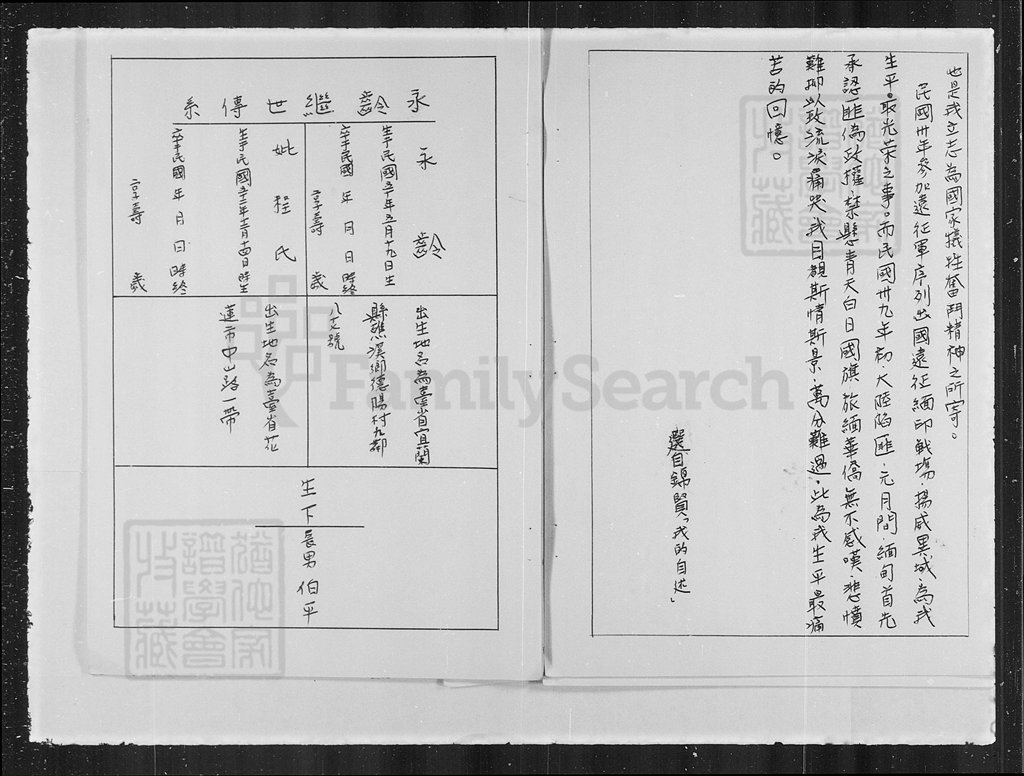 也是我立志為國家犧牲奮鬥精神之所寄。
民國卅年參加遠征軍序列出國遠征緬印戰場,揚威異域,為我
生平最光榮之事。而民國卅九年初,大陸陷匪,元月間,緬甸首先
承認匪偽政權,禁懸青天白日國旗,旅緬華僑無不感嘆,悲憤
難抑以致流淚痛哭,我目覩斯情斯景,萬分難過,此為我生平最痛
苦的回憶。
選自錦賢「我的自述」
永齡繼世傳系
永齡
生于民國五十年五月十九日生
卒民國 年 月 日 時終
享壽 歲
妣程氏
生于民國五十二年十二月十四日 時生
卒民國 年 月 日 時終
享壽 歲
出生地名為臺省宜蘭
縣礁溪鄉德陽村九鄰
八十七號
出生地名為臺省花
蓮市中山路一帶
生下
長男 伯平
FamilySearch
譜學會
收藏
譜學會
收藏